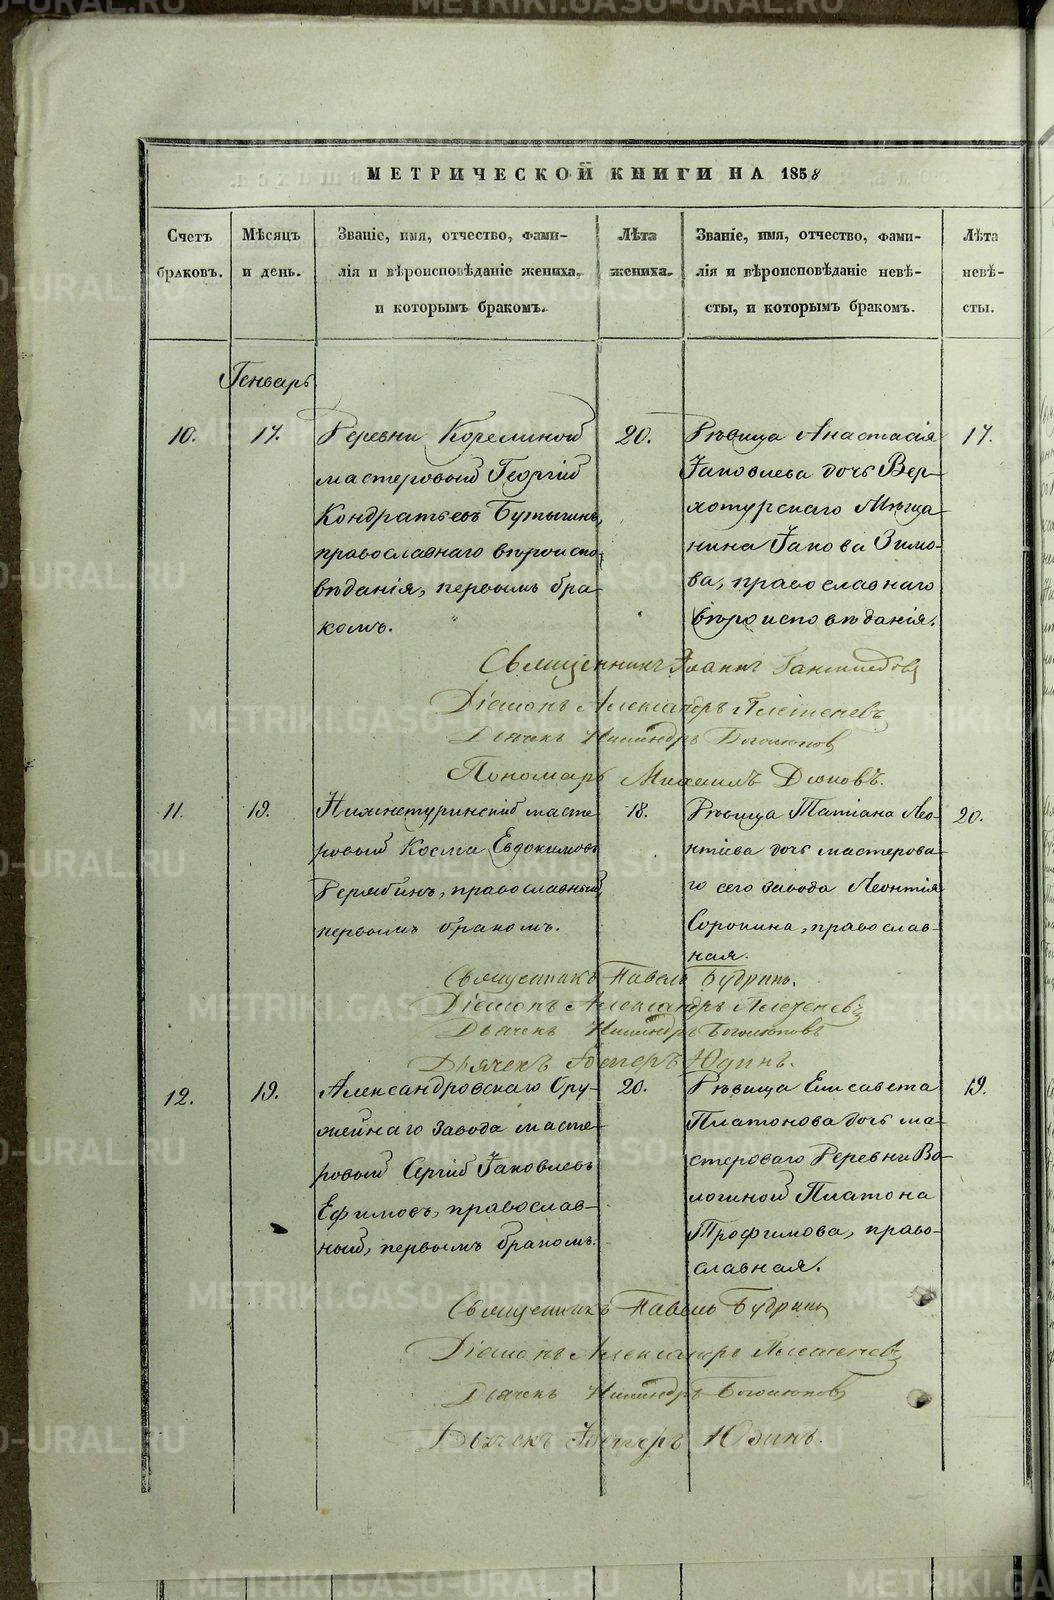 МЕТРИЧЕСКОЙ КНИГИ НА 1858
Счетъ браковъ.
Мѣсяцъ и день.
Званіе, имя, отчество, фами-
лія и вѣроисповѣданіе жениха,
и которымъ бракомъ.
Лѣта жениха.
Званіе, имя, отчество, фами-
лія и вѣроисповѣданіе невѣ-
сты, и которымъ бракомъ.
Лѣта невѣ-
сты.
Генварь
10.
17.
Деревни Корелиной
мастеровый Георгій
Кондратьевъ
православнаго вѣроиспо-
вѣданія, первымъ бра-
комъ.
20.
Дѣвица Анастасія
Іаковлева дочь Вер-
хотурскаго Мѣща-
нина Іакова Зимо-
ва, православнаго
вѣроисповѣданія.
17.
Священникъ Іоаннъ
Діаконъ Александръ
Дьячекъ
Пономарь Михаилъ
11.
19.
Нижнетуринскій масте-
ровый Косма Евдокимовъ
Дерябинъ, православный
первымъ бракомъ.
18.
Дѣвица Татіана Лео-
нтіева дочь мастерова-
го сего завода Леонтія
Сорокина, православ-
ная.
20.
Священникъ Павелъ Будринъ.
Діаконъ Александръ
Дьячекъ
Дьячекъ Юдинъ.
12.
19.
Александровскаго Ору-
жейнаго завода масте-
ровый Сергій Іаковлевъ
Ефимовъ, православ-
ный, первымъ бракомъ.
20.
Дѣвица Елисавета
Платонова дочь ма-
стероваго Деревни Во-
логиной Платона
Трофимова, право-
славная.
19.
Священникъ Павелъ Будринъ
Діаконъ Александръ
Дьячекъ
Дьячекъ Юдинъ.
METRIKI.GASO-URAL.RU